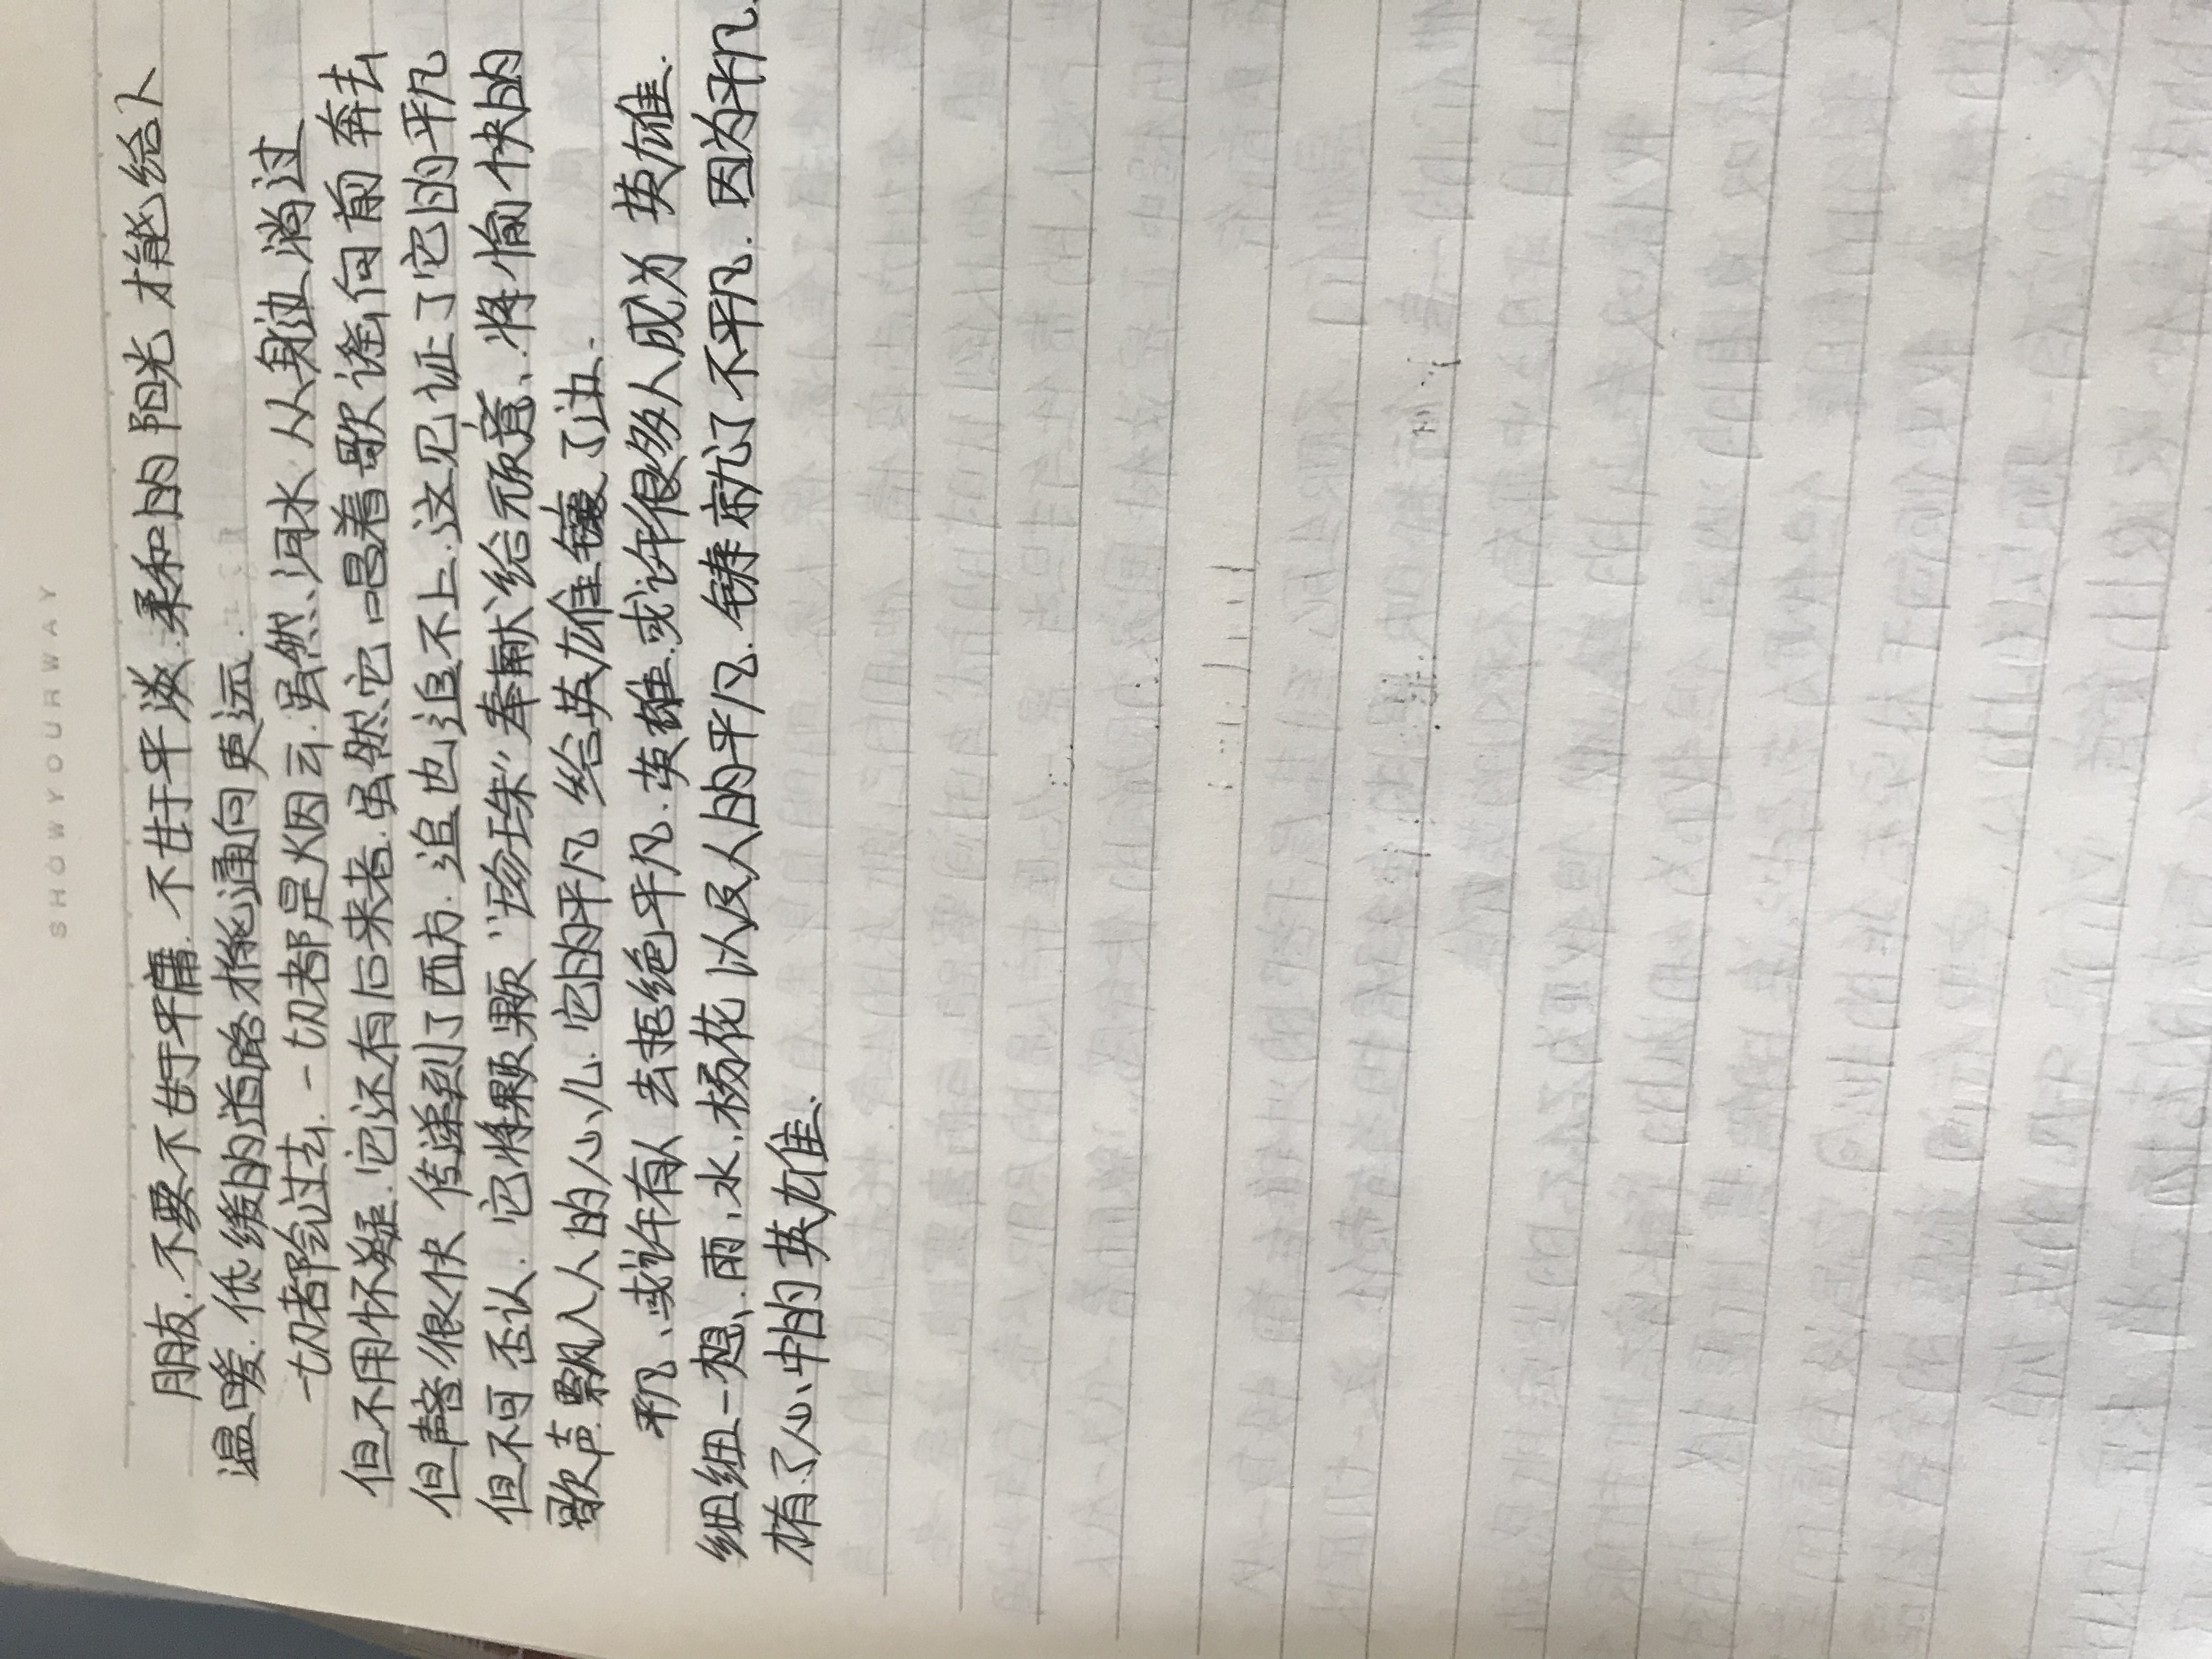 SHOWYOURWAY
朋友.不要不甘于平庸.不甘于平淡.柔和的阳光才能给人
温暖.低缓的道路才能通向更远.
一切都会过去.一切都是烟云.虽然、河水从身边淌过
但不用怀疑.它还有后来者.虽然它唱着歌谣向前奔去
但声音很快传递到了西方.追也追不上.这见证了它的平凡
但不可否认.它将颗颗“珍珠”奉献给顽童、将愉快的
歌声飘入人的心儿.它的平凡给英雄镶了边.
平凡、或许有人去拒绝平凡.英雄.或许很多人成为英雄.
细细一想、雨,水,杨花以及人的平凡.铸就了不平凡.因为平凡.
才有了心中的英雄.